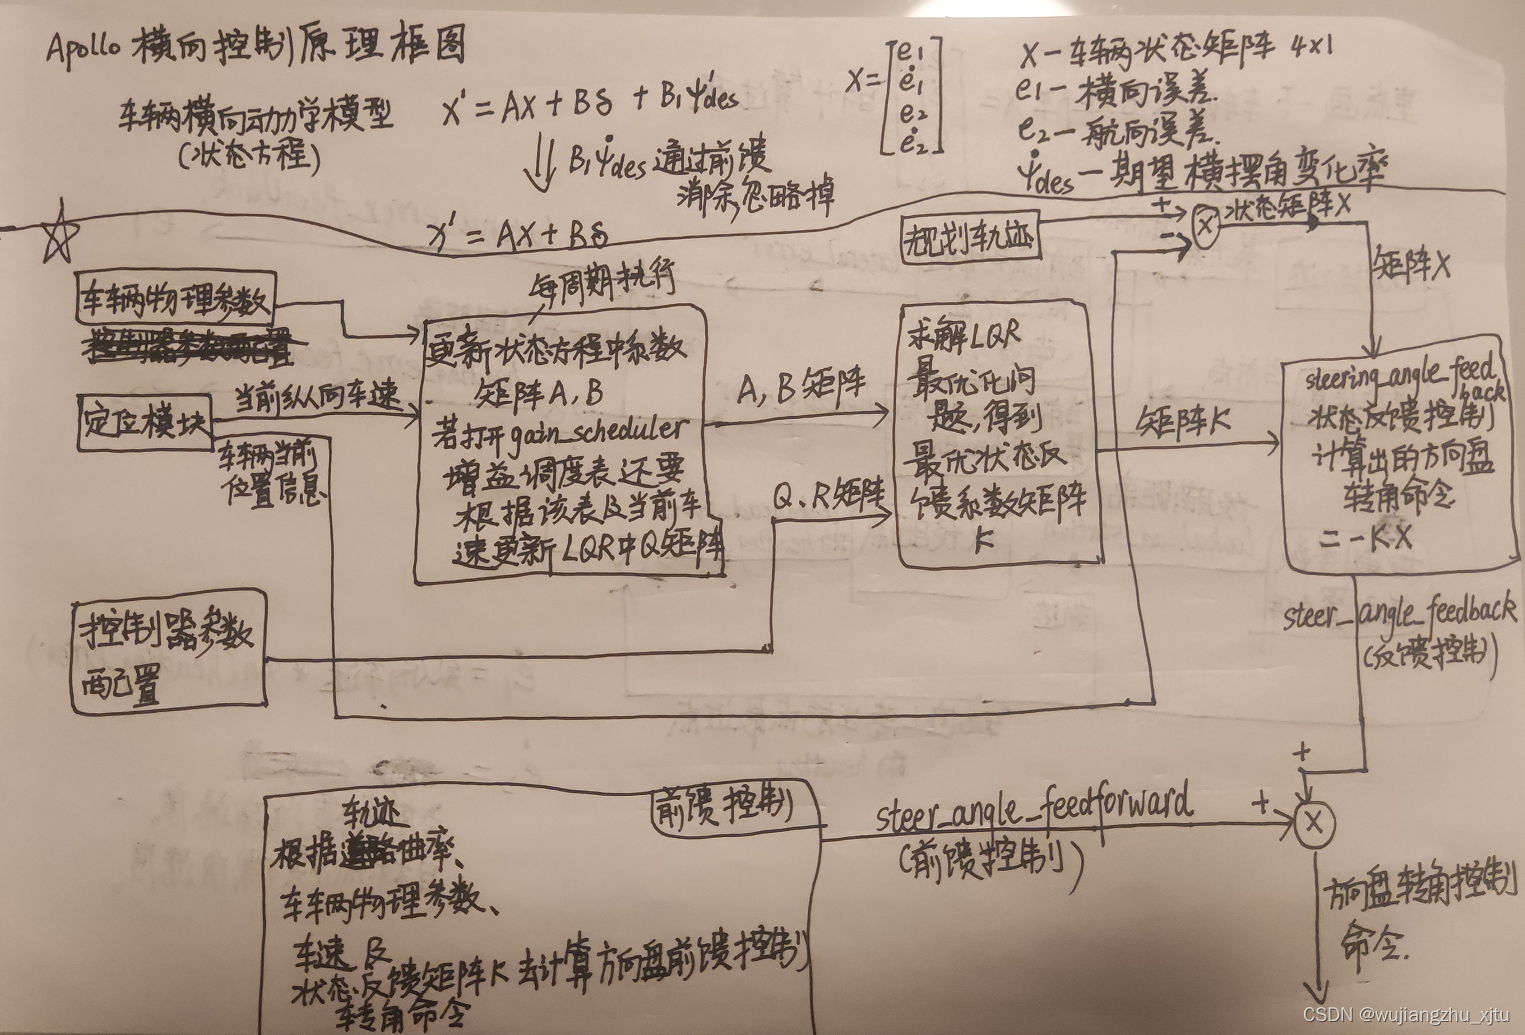 Apollo 横向控制原理框图
车辆横向动力学模型
(状态方程)
x' = Ax + Bδ + B₁ψ'des
B₁ψ̇des 通过前馈
消除,忽略掉
x' = Ax + Bδ
X = [e₁ ė₁ e₂ ė₂]
X — 车辆状态矩阵 4×1
e₁ — 横向误差.
e₂ — 航向误差.
ψ̇des — 期望横摆角变化率
规划轨迹
+
-
X
状态矩阵X
矩阵X
车辆物理参数
定位模块
当前纵向车速
车辆当前
位置信息
每周期执行
更新状态方程中系数
矩阵A,B
若打开gain_scheduler
增益调度表还要
根据该表及当前车
速更新LQR中Q矩阵
A,B矩阵
Q、R矩阵
求解LQR
最优化问
题,得到
最优状态反
馈系数矩阵
K
矩阵K
steering_angle_feed
back
状态反馈控制
计算出的方向盘
转角命令
= -K·X
steer_angle_feedback
(反馈控制)
控制器参数
配置
前馈控制
轨迹
根据曲率、
车辆物理参数、
车速及
状态反馈矩阵K去计算方向盘前馈控制
转角命令
steer_angle_feedforward
(前馈控制)
+
+
X
方向盘转角控制
命令.
CSDN @wujiangzhu_xjtu